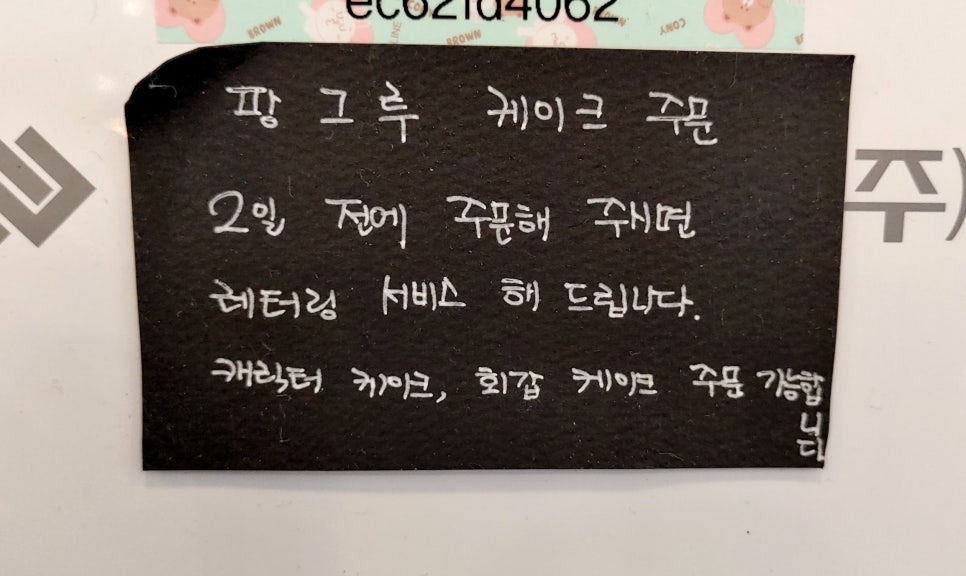 ec621d4062
BROWN
LINE
BROWN
CONY
팡 그루 케이크 주문
2일 전에 주문해 주시면
레터링 서비스 해 드립니다.
캐릭터 케이크, 회갑 케이크 주문 가능합
니
다
주)